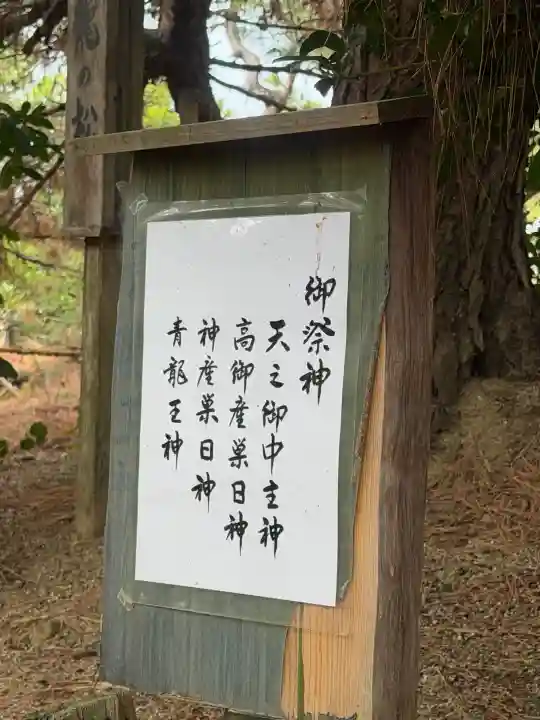 御祭神
天之御中主神
高御産巣日神
神産巣日神
青龍王神
龍の松